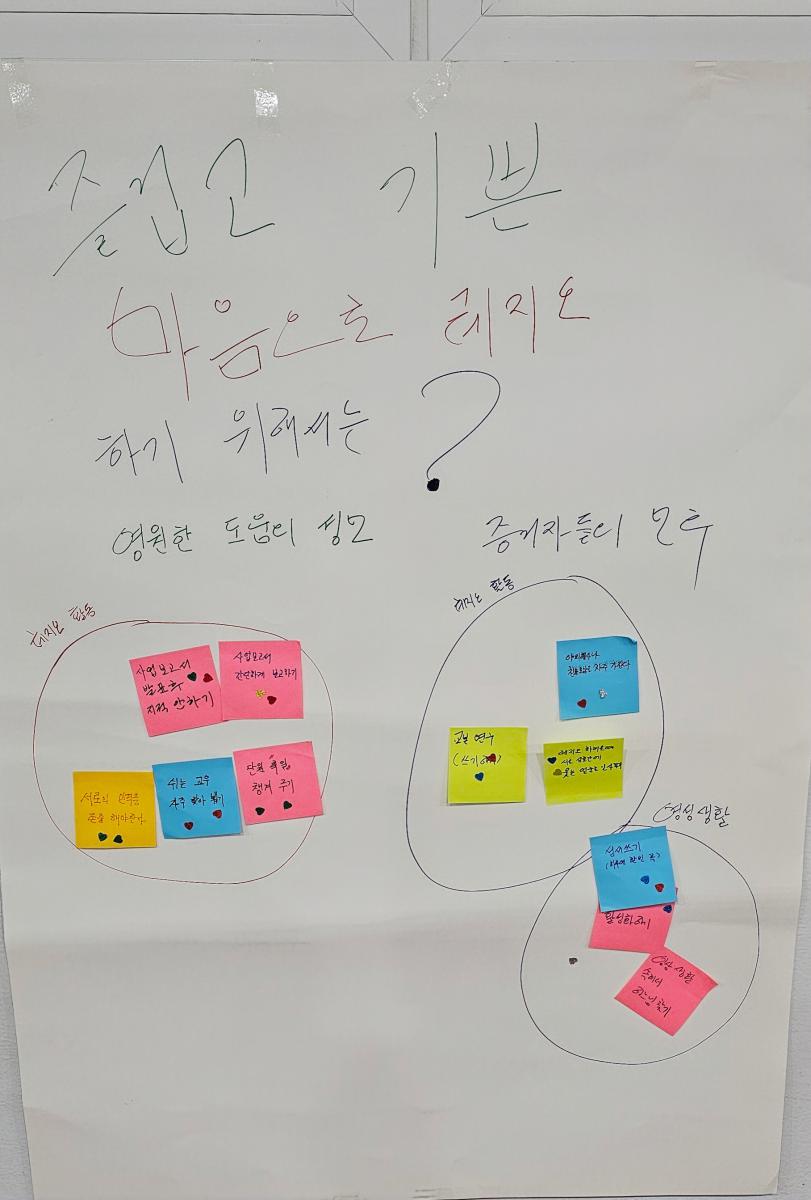 즐겁고 기쁜
마음으로 레지오
하기 위해서는 ?
영원한 도움의 성모
증거자들의 모후
레지오 활동
사업보고서
발표후
지적 안하기
사업보고서
간단하게 보고하기
서로의 인격을
존중 해야한다
쉬는 교우
자주 찾아 뵙기
단원 책임
챙겨 주기
레지오 활동
자주
교본 연구
(쓰기
레지오
영성생활
성서쓰기
활성화하기
영성 생활
속에서
하느님 찾기